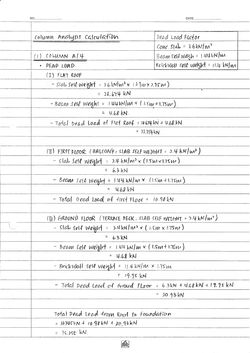 NO.
DATE
Column Analysis Calculation
Dead Load Factor
Conc Slab = 3.6 kN/m²
Beam Self Weigh = 1.44 kN/m
Brickwall Self Weight = 11.4 kN/m
(1) COLUMN A14
- DEAD LOAD
(I) FLAT ROOF
- Slab Self Weight =
- Beam Self Weight = 1.44 kN/m × (1.5m + 1.75m)
= 4.68 kN
- Total Dead Load of Flat Roof =
(II) FIRST FLOOR (BALCONY; SLAB SELF WEIGHT = 2.4 kN/m²)
- Slab Self Weight = 2.4 kN/m² × (1.5m × 1.75m)
= 6.3 kN
- Beam Self Weight = 1.44 kN/m × (1.5m + 1.75m)
= 4.68 kN
- Total Dead Load of First Floor = 10.98 kN
(III) GROUND FLOOR (TERRACE DECK; SLAB SELF WEIGHT = 2.4 kN/m²)
- Slab Self Weight = 2.4 kN/m² × (1.5m × 1.75m)
= 6.3 kN
- Beam Self Weight = 1.44 kN/m × (1.5m + 1.75m)
= 4.68 kN
- Brickwall Self Weight = 11.4 kN/m × 1.75m
= 19.95 kN
- Total Dead Load of Ground Floor = 6.3 kN + 4.68 kN +
= 30.93 kN
Total Dead Load from Roof to Foundation